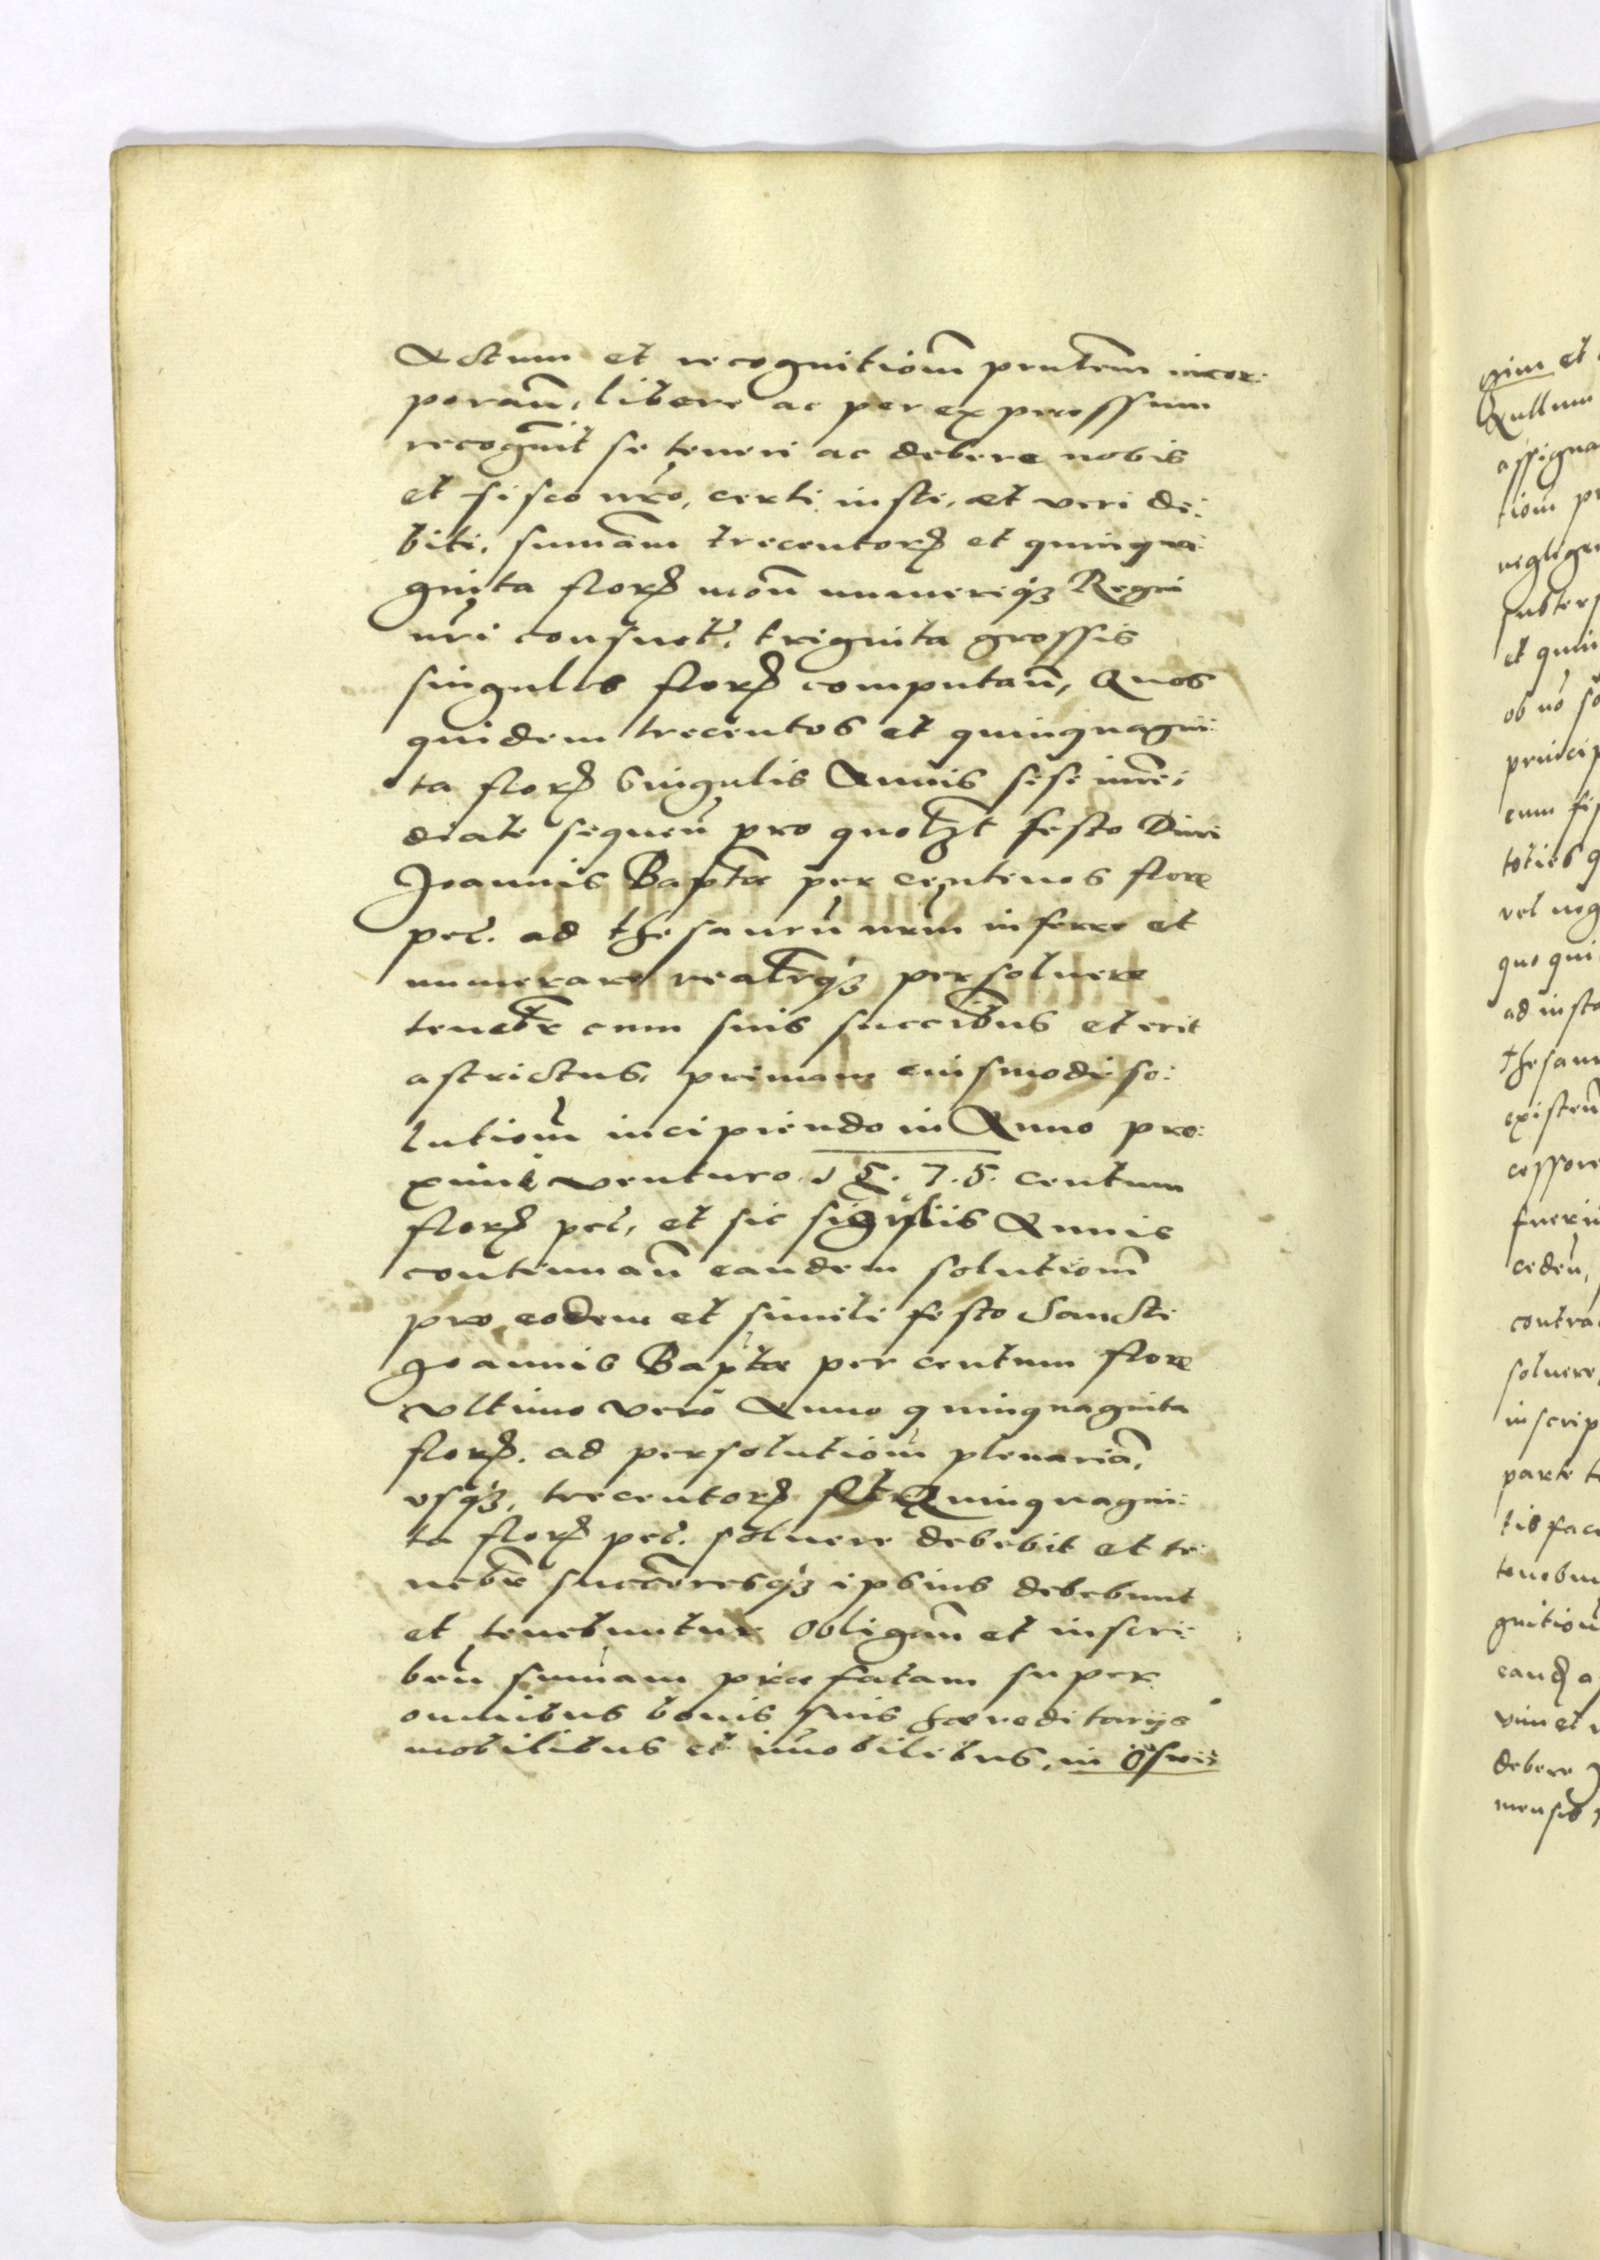 Actum et recognitiom̃ pn̄tem̃ incor:
poran̄, libere ac per expressum
recogn̄it se teneri ac debere nobis
et fisco nr̄o, certi iusti, et veri de:
biti, sum̄am trecentorꝭ et quinqua
ginta florꝭ mon̄ numeriqꝫ Regni
nr̄i consuet̄, triginta grossis
singulos florꝭ computan̄, Quos
quidem trecentos et quinquagin:
ta florꝭ singulis Annis sese im̄e:
diate sequen̄ pro quolꝫt festo Diui
Joannis Bapt̄æ per centenos flore
pol̄. ad thesaurū nr̄m inferre et
numerare realr̄qꝫ persoluere
teneb̄r cum suis succr̄ibus et erit
astrictus, primam euismodi so:
lutiom̄ incipiendo in Anno pro:
ximè venturo 1 5. 7. 5. centum
florꝭ pol̄, et sic sigulis Annis
continuan̄ eandem solutiom̄
pro eodem et simili festo Sancti
Joannis Bapt̄æ per centum flore
vltimo verò Anno quinquaginta
florꝭ. ad persolutiom̄ plenariā,
vsqꝫ, trecentorꝭ et Quinquagin:
ta florꝭ pol̄. soluere debebit et te
neb̄r succr̄oresqꝫ ipsius debebunt
et tenebuntur obligan̄ et inscri
ben̄ sum̄am præfatam super
omnibus bonis suis hæreditarijs
mobilibus et im̄obilibus, in Oswi:

gim et
Nullum
assigna
tiom̄ pr
negligen
subterf
et quin
ob nō so
princip
cum fis
toties q
vel neg
quo qui
ad insta
thesaur
existen̄
cessore
fueri
ceden̄,
contra
soluere
inscrip
parte te
tis faci
tenebun
gnitiom̄
eandꝭ a
vim et
debere
mensis